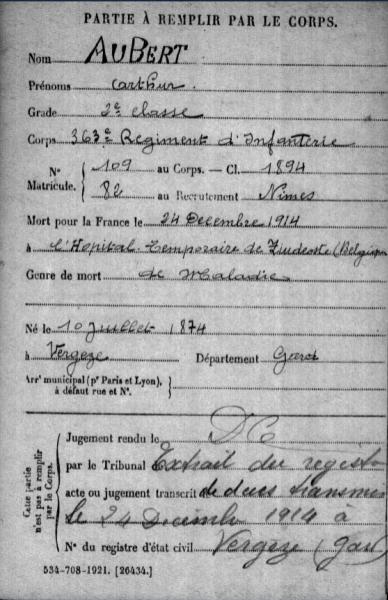 PARTIE À REMPLIR PAR LE CORPS.
Nom AUBERT
Prénoms Arthur.
Grade 2e classe
Corps 363e Régiment d'Infanterie
N° Matricule. { 109 au Corps. — Cl. 1894
82 au Recrutement Nîmes
Mort pour la France le 24 Décembre 1914
à l'Hôpital Temporaire de Zuidcote (Belgique
Genre de mort de Maladie
Né le 10 Juillet 1874
à Vergèze Département Gard
Arrt municipal (pr Paris et Lyon), à défaut rue et N°. }
Cette partie n'est pas à remplir par le Corps.
Jugement rendu le DC
par le Tribunal Extrait du regist
acte ou jugement transcrit de décès transmis
le 24 Décemb 1914 à
N° du registre d'état civil Vergèze (Gard)
534-708-1921. [26434.]